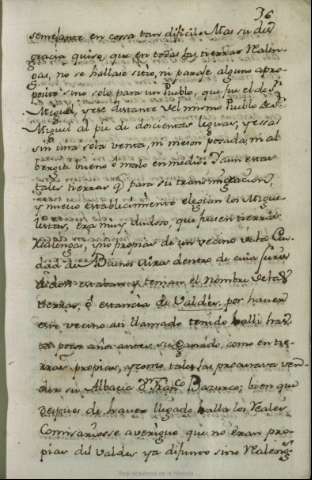 36
semejante en cosa tan dificil. Mas su des
gracia quiso, que en todas las tierras Realen
gas, no se hallase sitio, ni paraje alguno apro
posito sino solo para un Pueblo, que fue el de Sn.
Miguel, y este distante del mismo Pueblo de Sn.
Miguel al pie de doscientas leguas, y essas
sin una sola venta, ni meson posada, ni al
bergue bueno o malo en medio. Y aun estas
tales tierras q para su transmigracion,
y nuevo establecimiento elegian los Migue
listas, era muy dudoso, que fuesen tierras
Realengas, y no propias de un vecino de la Ciu
dad de Buenos Aires dentro de cuia juris
diccion estaban, y tenian el nombre de las
tierras, o estancia de Valdes, por haver
este vecino asi llamado tenido halli has
ta pocos años antes su ganado, como en tie
rras propias, y como tales las procurava ven
der su Albacea Dn. Franco. Bazurco, bien que
despues de haver llegado halla los Reales
Comisarios se averiguó que no eran pro
pias del Valdes ya difunto sino Realeng
Real Academia de la Historia